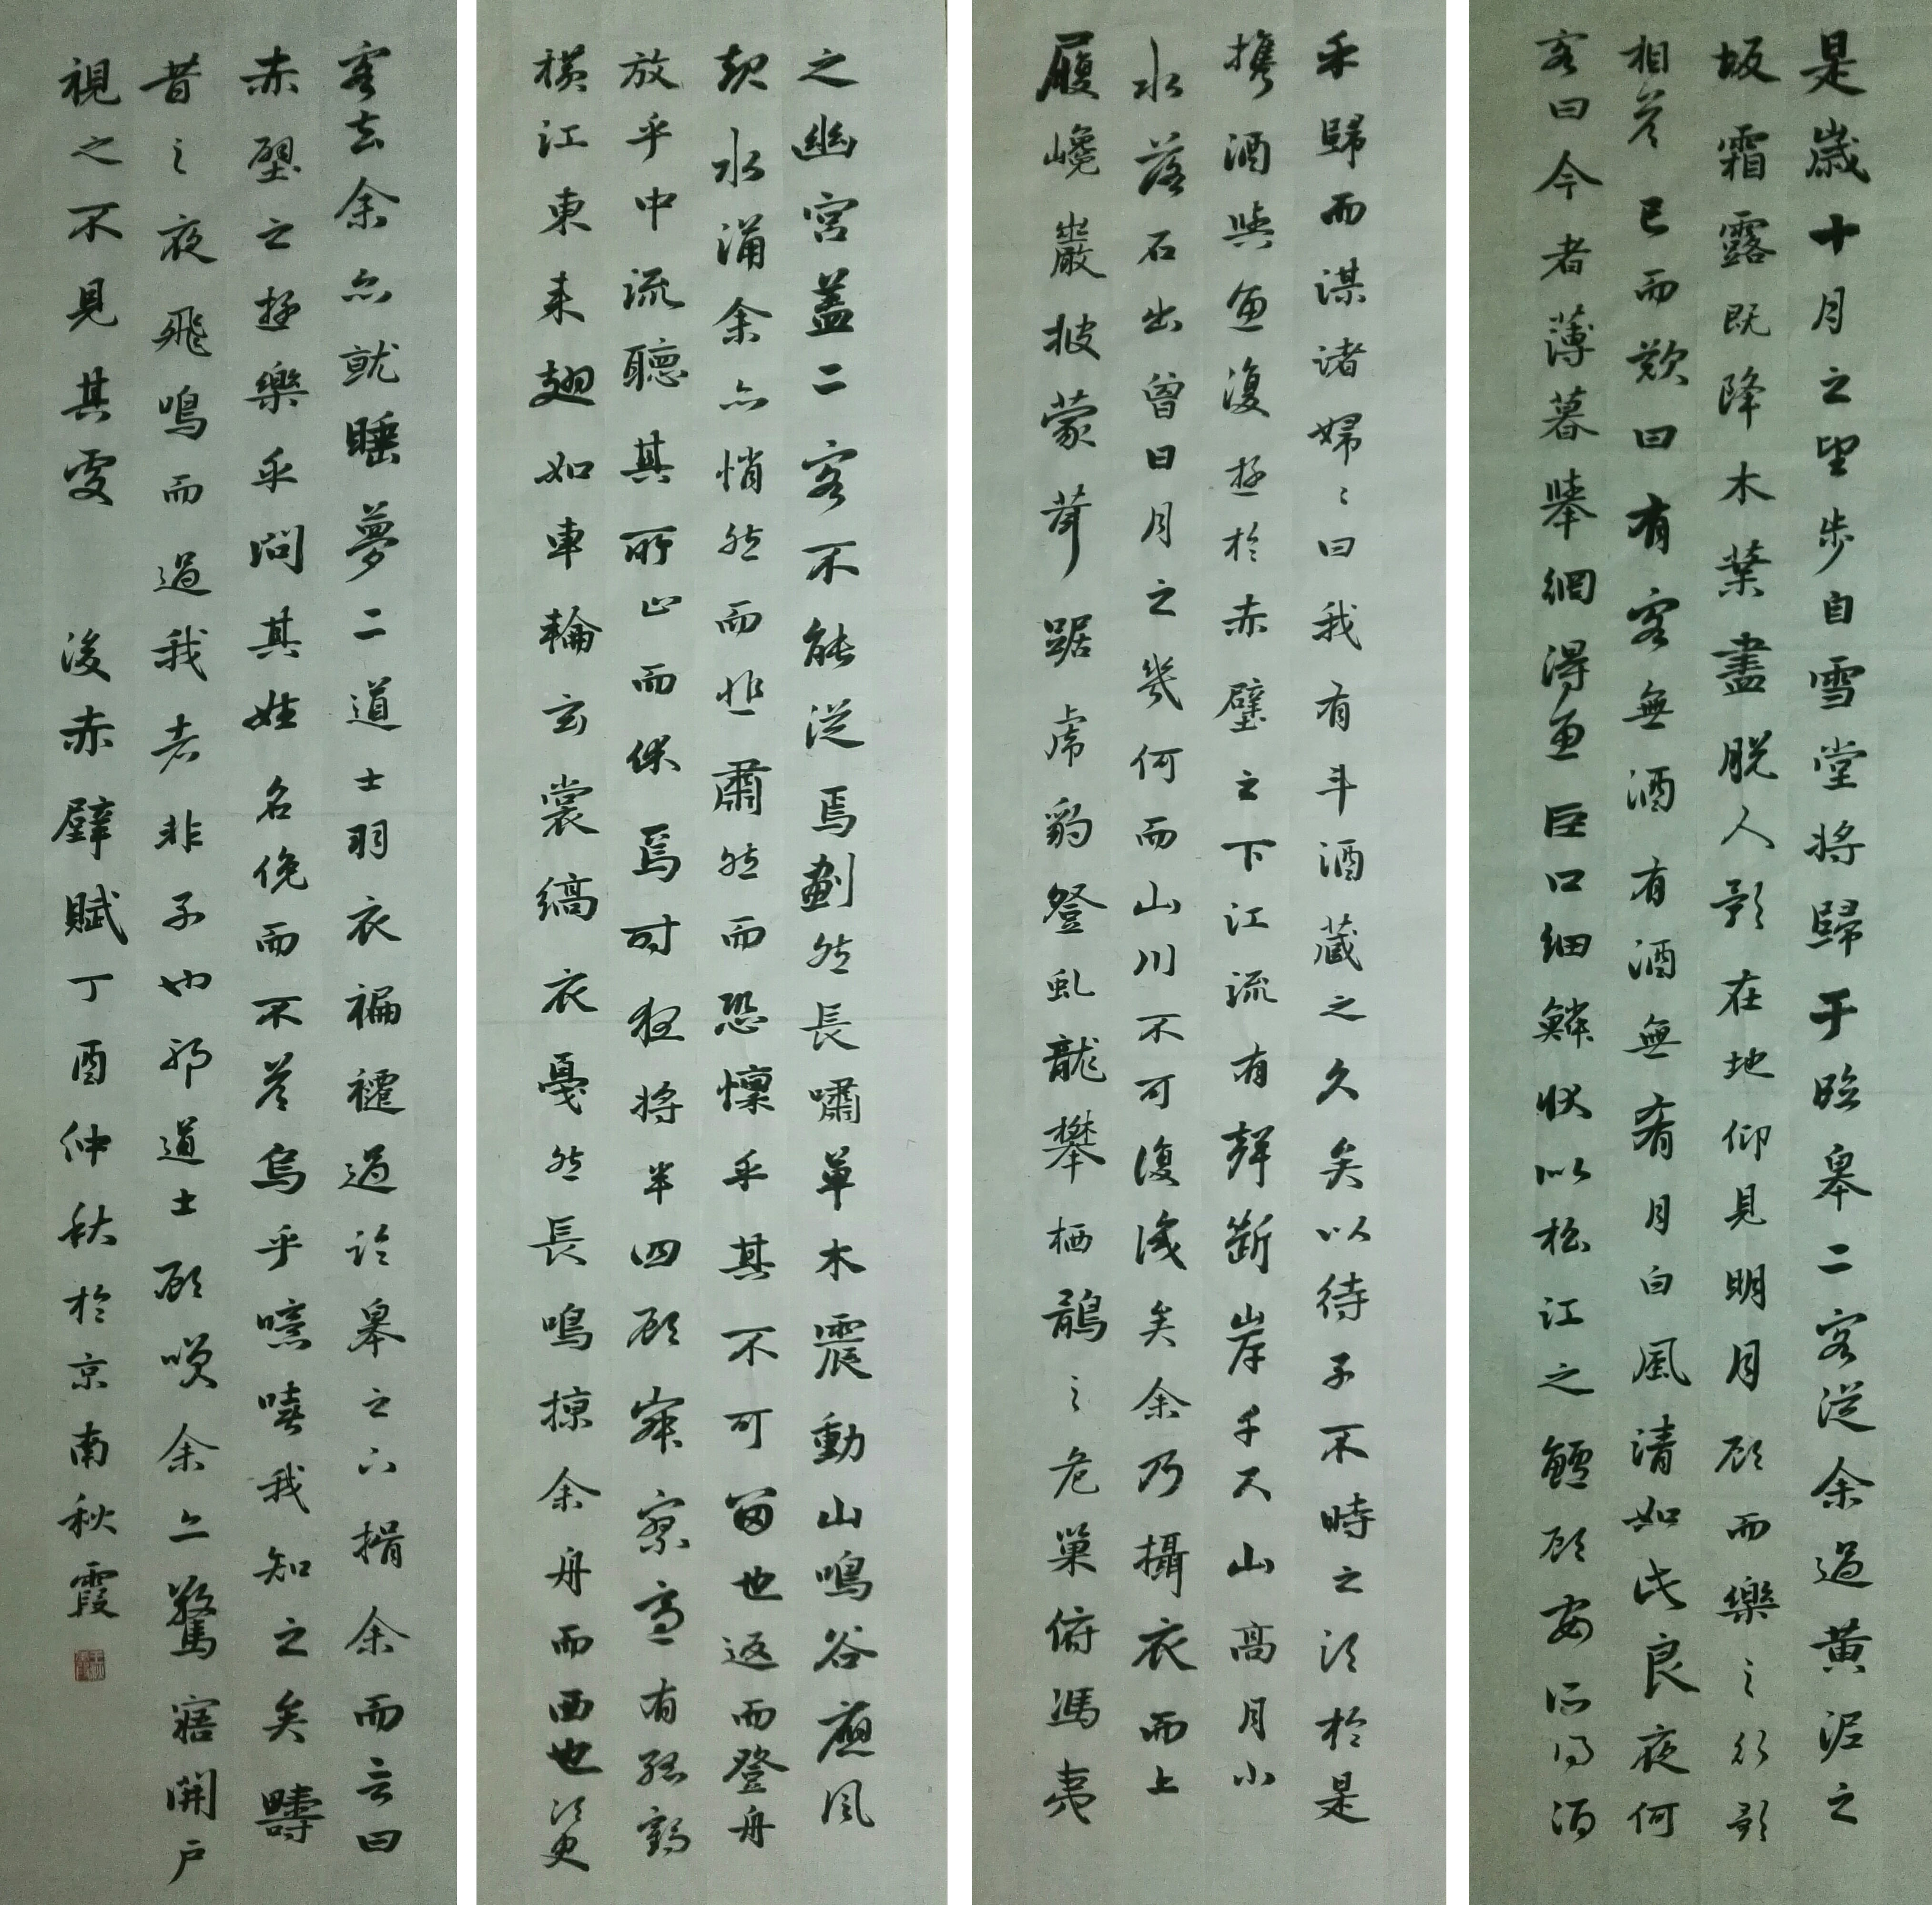 是歲十月之望步自雪堂將歸于臨皋二客從余過黃泥之
坂霜露既降木葉盡脫人影在地仰見明月顧而樂之行歌
相答已而歎曰有客無酒有酒無肴月白風清如此良夜何
客曰今者薄暮舉網得魚巨口細鱗狀似松江之鱸顧安所得酒
乎歸而謀諸婦〻曰我有斗酒藏之久矣以待子不時之須於是
攜酒與魚復遊於赤壁之下江流有聲斷岸千尺山高月小
水落石出曾日月之幾何而山川不可復識矣余乃攝衣而上
履巉巖披蒙茸踞虎豹登虬龍攀栖鶻之危巢俯馮夷
之幽宮蓋二客不能從焉劃然長嘯草木震動山鳴谷應風
起水涌余亦悄然而悲肅然而恐懍乎其不可留也返而登舟
放乎中流聽其所止而休焉時夜將半四顧寂寥適有孤鶴
橫江東來翅如車輪玄裳縞衣戛然長鳴掠余舟而西也須臾
客去余亦就睡夢二道士羽衣褊褼過臨皋之下揖余而言曰
赤壁之遊樂乎問其姓名俛而不答烏乎噫嘻我知之矣疇
昔之夜飛鳴而過我者非子也邪道士顧笑余亦驚寤開戶
視之不見其處 後赤壁賦丁酉仲秋於京南秋霞